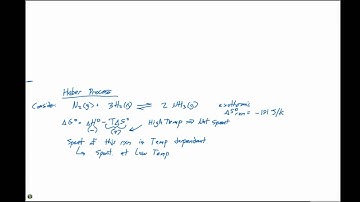 Haber Process
Consider: N₂(g) + 3H₂(g) ⇌ 2 NH₃(g) exothermic
ΔS°rxn = -191 J/K
ΔG° = ΔH° - TΔS° High Temp ⇒ Not Spont
(-) (+)
Spont of this rxn is Temp dependent
↳ Spont. at Low Temp